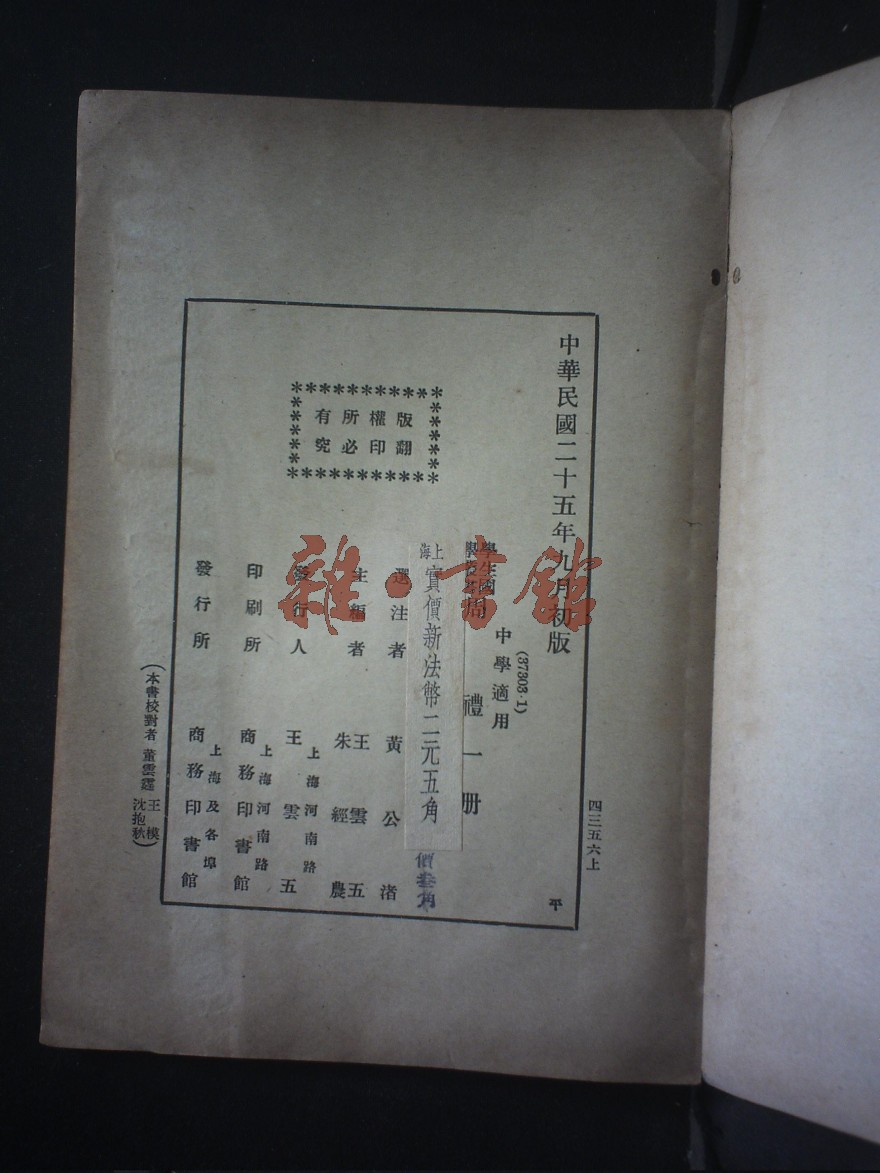 中華民國二十五年九月初版
(37303·1)
中學適用
學生國
周禮一册
上海實價新法幣二元五角
價叁角
版權所有
翻印必究
選注者 黃公渚
主編者 王雲五
朱經農
發行人 王雲五
上海河南路
印刷所 商務印書館
上海河南路
發行所 商務印書館
上海及各埠
四三五六上
平
(本書校對者 董雲霆 王模
沈抱秋)
雜·书館